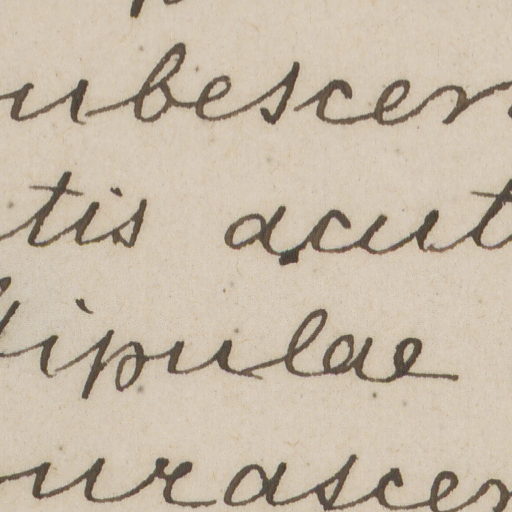 ubescen
tis acut
tipulae
urascen